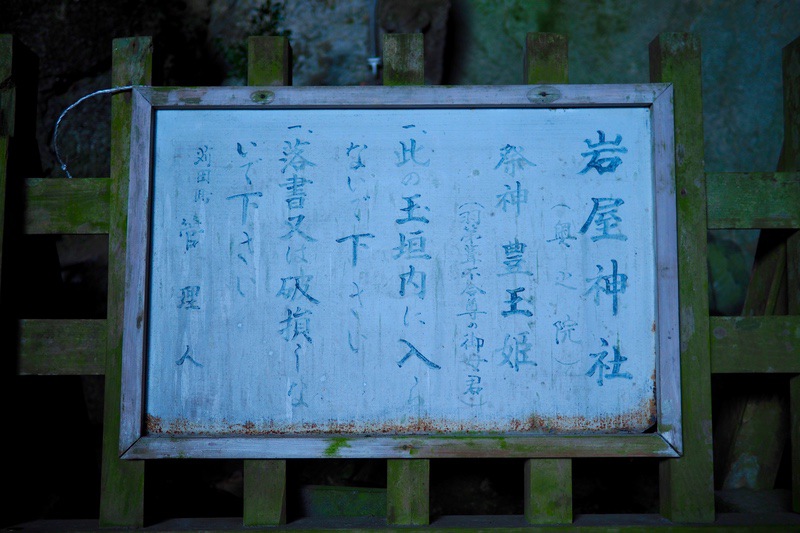 岩屋神社
(奥之院)
祭神 豊玉姫
葺不合尊の御母君)
一、此の玉垣内に入ら
ないで下さい
一、落書又は破損しな
いで下さい
管理人